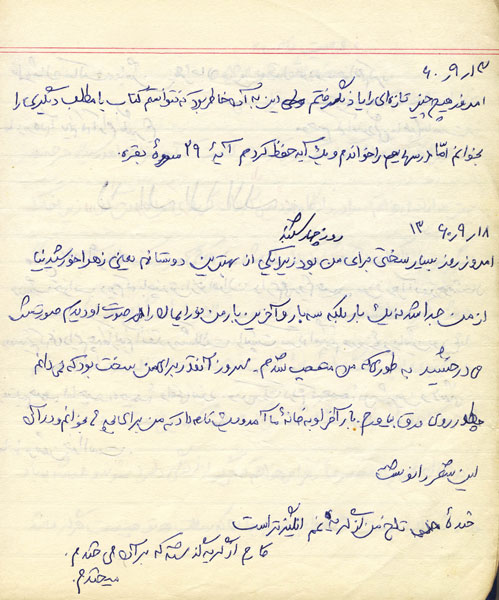 ۶۰،۹،۱۳
امروز هیچ چیز تازه‌ای را یاد نگرفتم ولی این به آن خاطر بود که نتوانستم کتاب یا مطلب دیگری را
بخوانم امّا درسهایم را خواندم و یک آیه حفظ کردم آیهٔ ۲۹ سورهٔ بقره.
۱۳۶۰،۹،۱۸ روز چهارشنبه
امروز روز بسیار سختی برای من بود زیرا یکی از بهترین دوستانم یعنی زهرا خورشیدنیا
از من جدا شد نه یک بار بلکه سه بار و آخرین بار من نور ایمان را در صورت او دیدم صورتش
می‌درخشید به طوری که من متعجب شدم. امروز آنقدر برای من سخت بود که نمی‌دانم
چطور روی ورق بیاورم. بار آخر او به خانهٔ ما آمد و یک نامه داد که من برای او می‌خوانم و در آن
این شعر را نوشت
خندهٔ تلخ من از گریه غم انگیزتر است
کارم از گریه گذشته که بر آن می خندم.
میخندم.